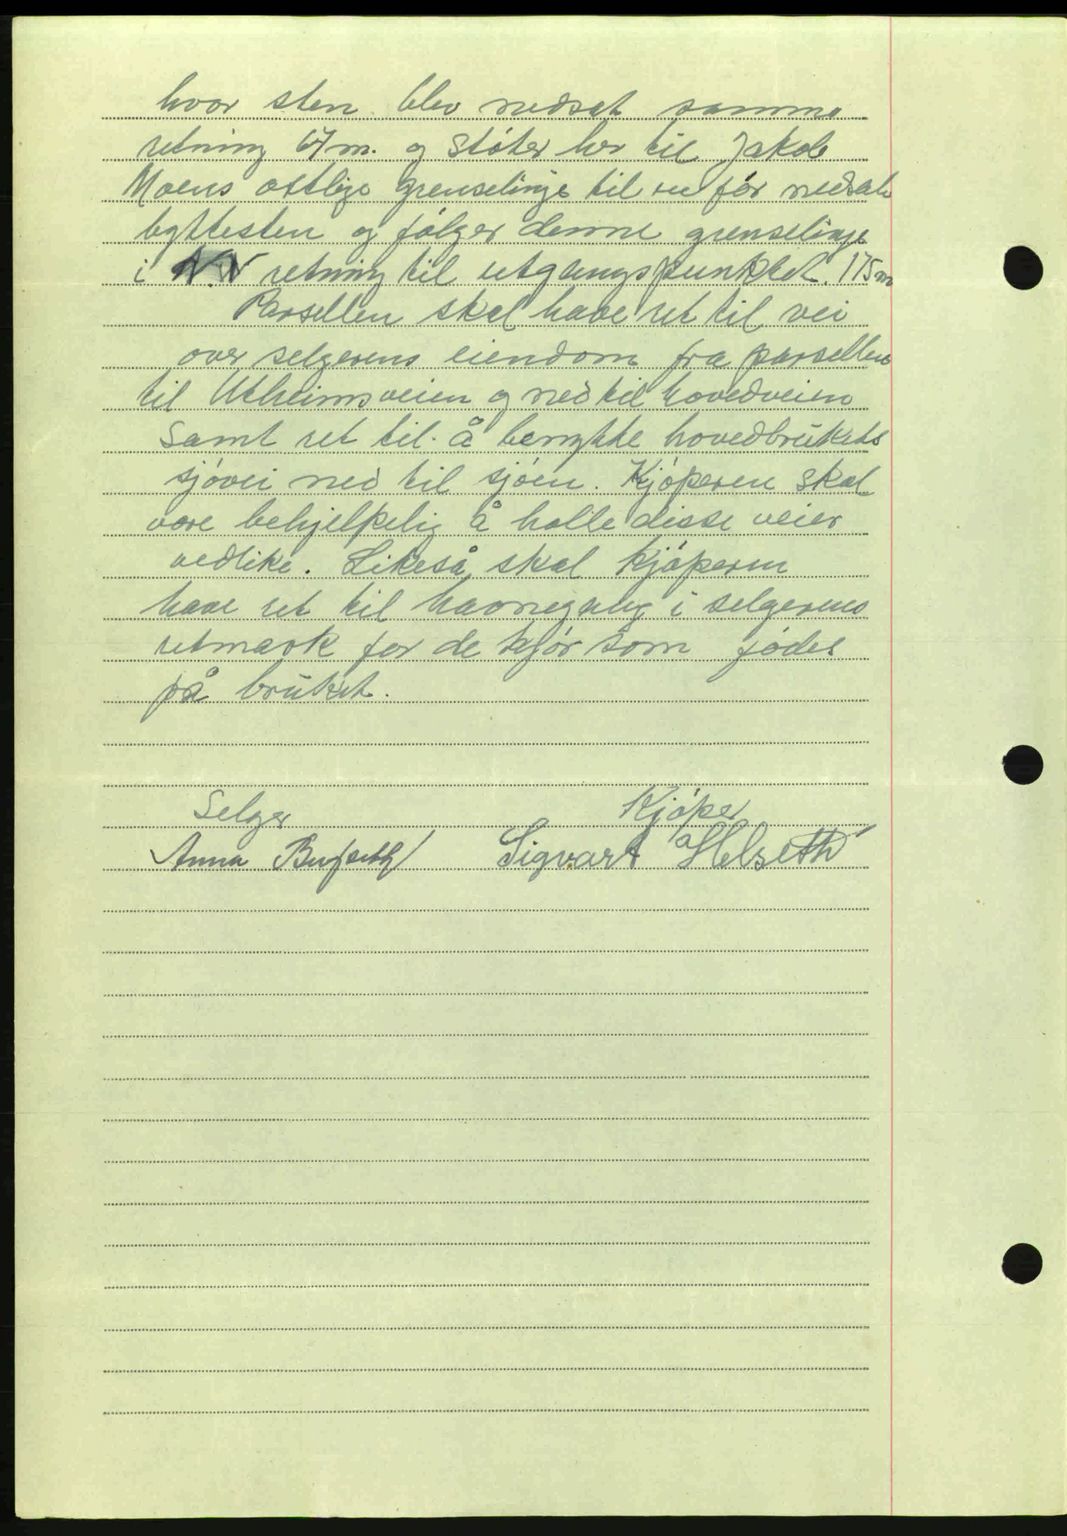 hvor sten blev nedsat samme
retning 67 m. og støter her til Jakob
Moens østlige grenselinje til en før nedsat
byttesten og følger denne grenselinje
i N.V retning til utgangspunktet. 175 m
Parsellen skal have ret til vei
over selgerens eiendom fra parsellen
til Utheimsveien og ned til hovedveien
samt ret til å benytte hovedbrukets
sjøvei ned til sjøen. Kjøperen skal
være behjelpelig å holle disse veier
vedlike. Likeså skal kjøperen
have ret til havnegang i selgerens
utmark for de kjør som födes
på bruket.
Selger Kjøper
Anna Sigvart Helseth